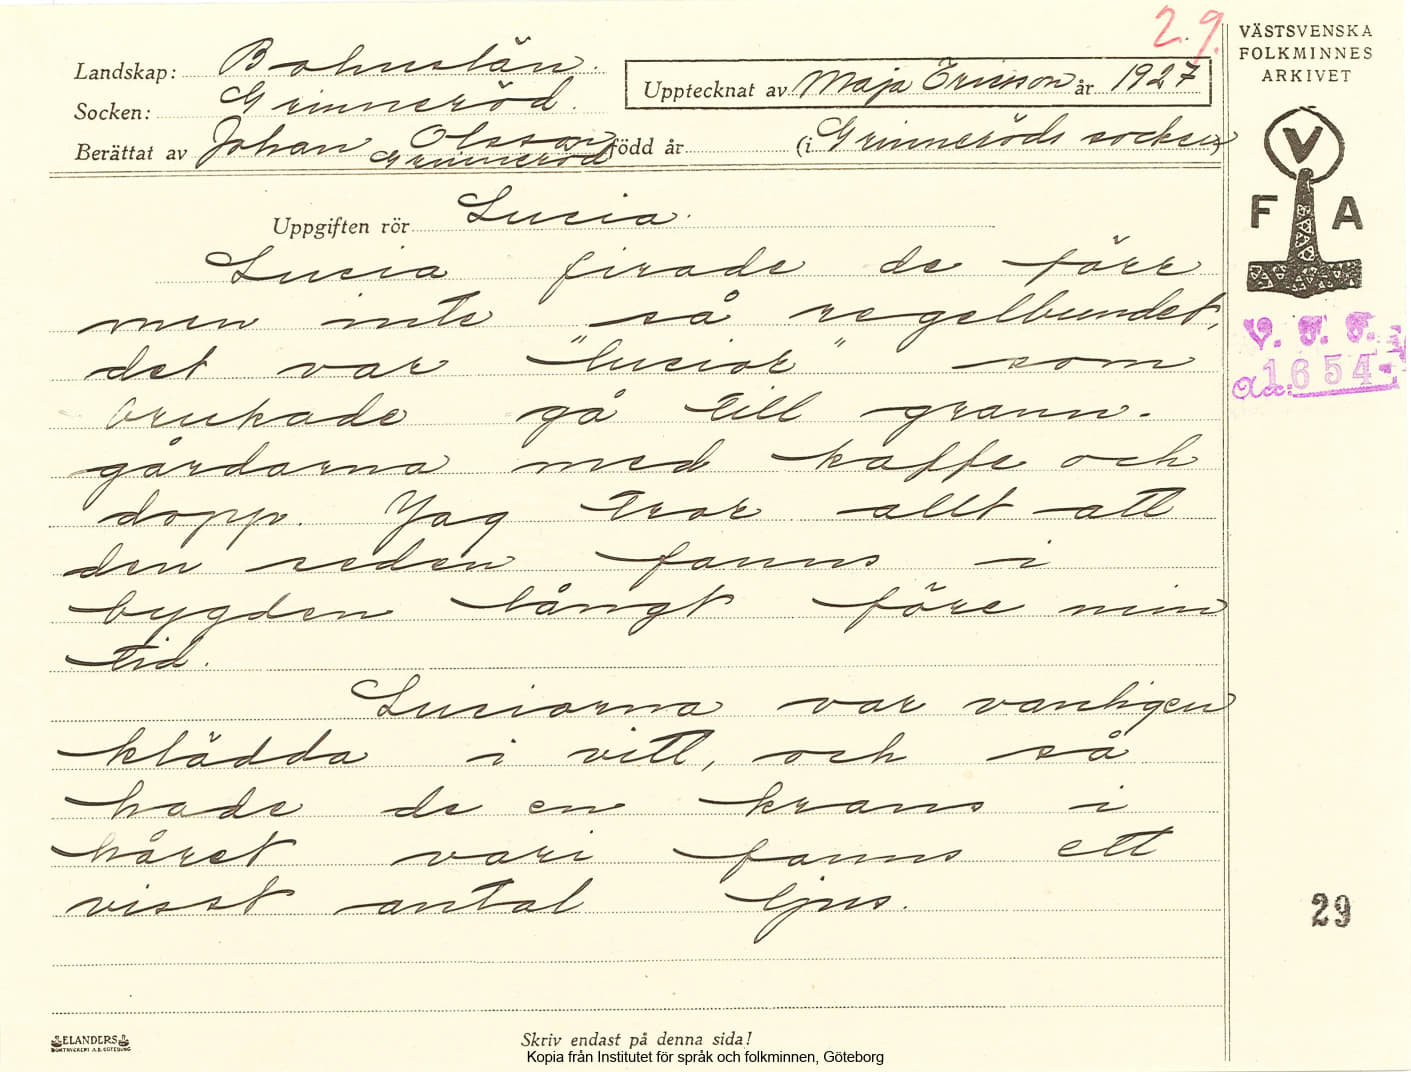 29.
VÄSTSVENSKA
FOLKMINNES
ARKIVET
Landskap: Bohuslän.
Upptecknat av Maja Ericsson år 1927
Socken: Grinneröd.
Berättat av Johan Olsson Grinneröd född år (i Grinneröds socken)
V
F A
Uppgiften rör Lucia.
Lucia firade de förr
men inte så regelbundet,
det var "lucior" som
brukade gå till grann-
gårdarna med kaffe och
dopp. Jag tror allt att
den seden fanns i
bygden långt före min
tid.
Luciorna var vanligen
klädda i vitt, och så
hade de en krans i
håret vari fanns ett
visst antal ljus.
V. F. F.
Acc: 1654
29
ELANDERS
BOKTRYCKERI A.B. GÖTEBORG
Skriv endast på denna sida!
Kopia från Institutet för språk och folkminnen, Göteborg